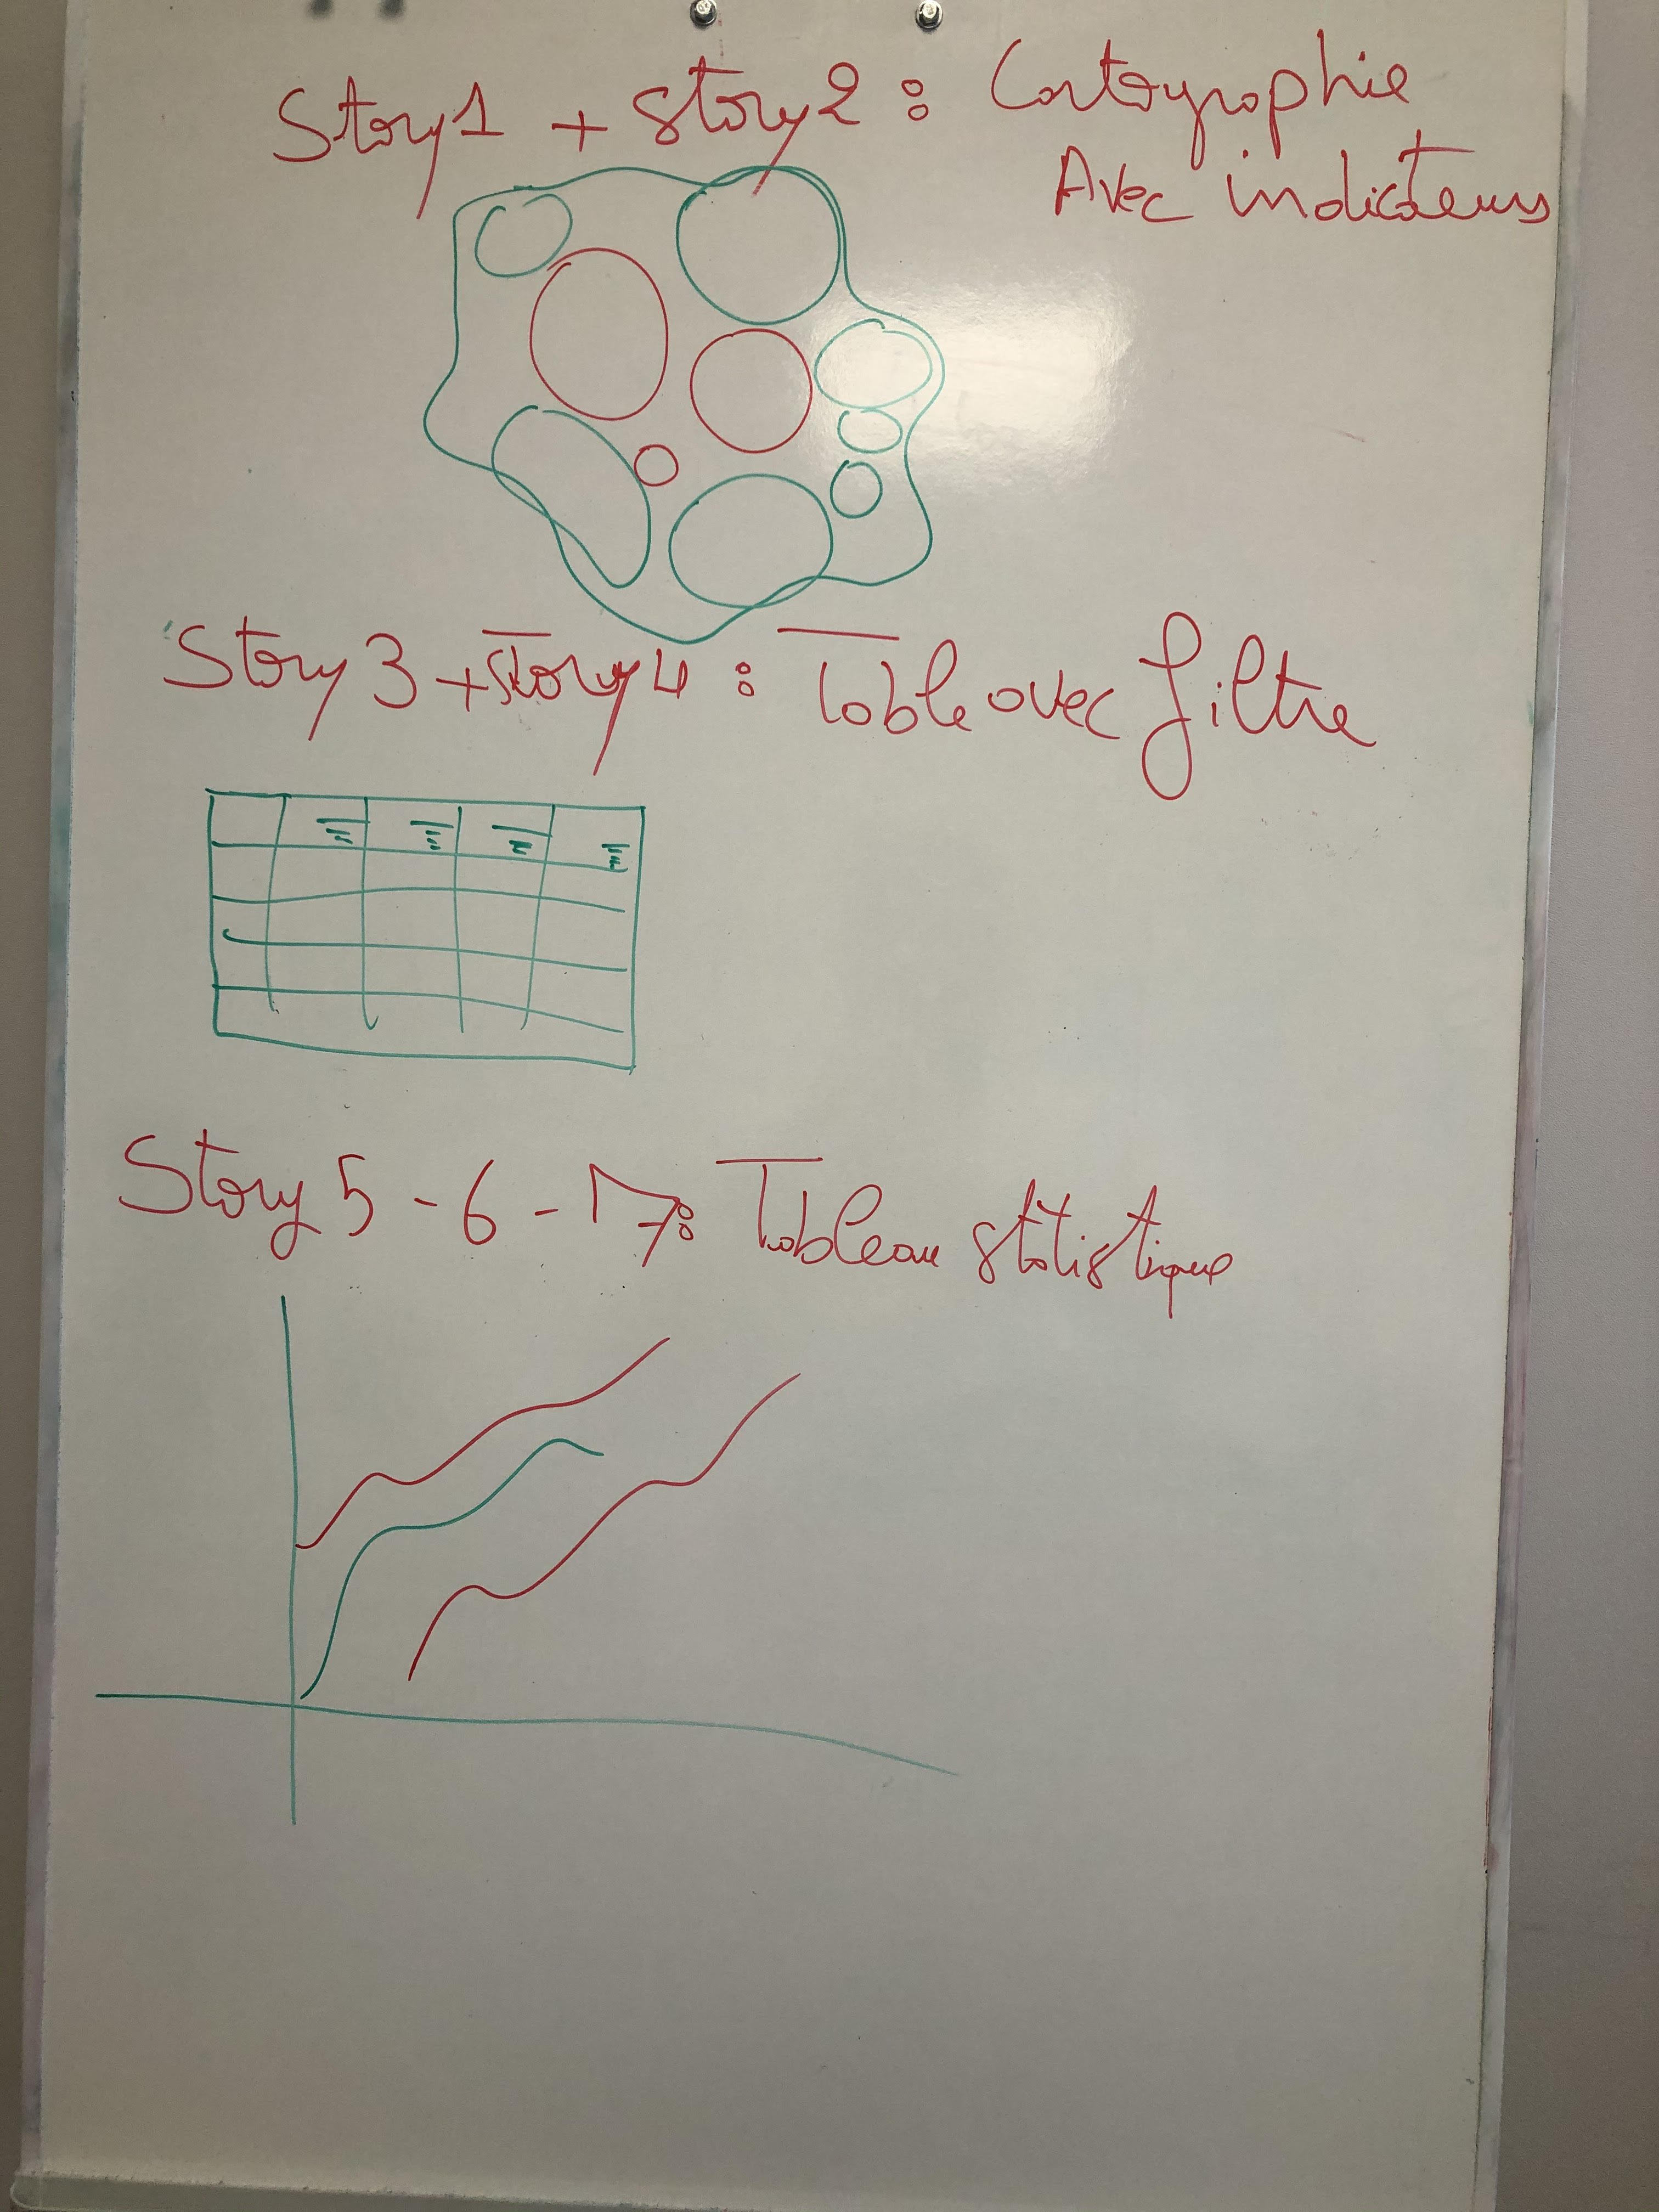 Story 1 + Story 2 : Cartographie
Avec indicateurs
Story 3 + Story 4 : Table avec filtre
Story 5 - 6 - 7 : Tableau statistique